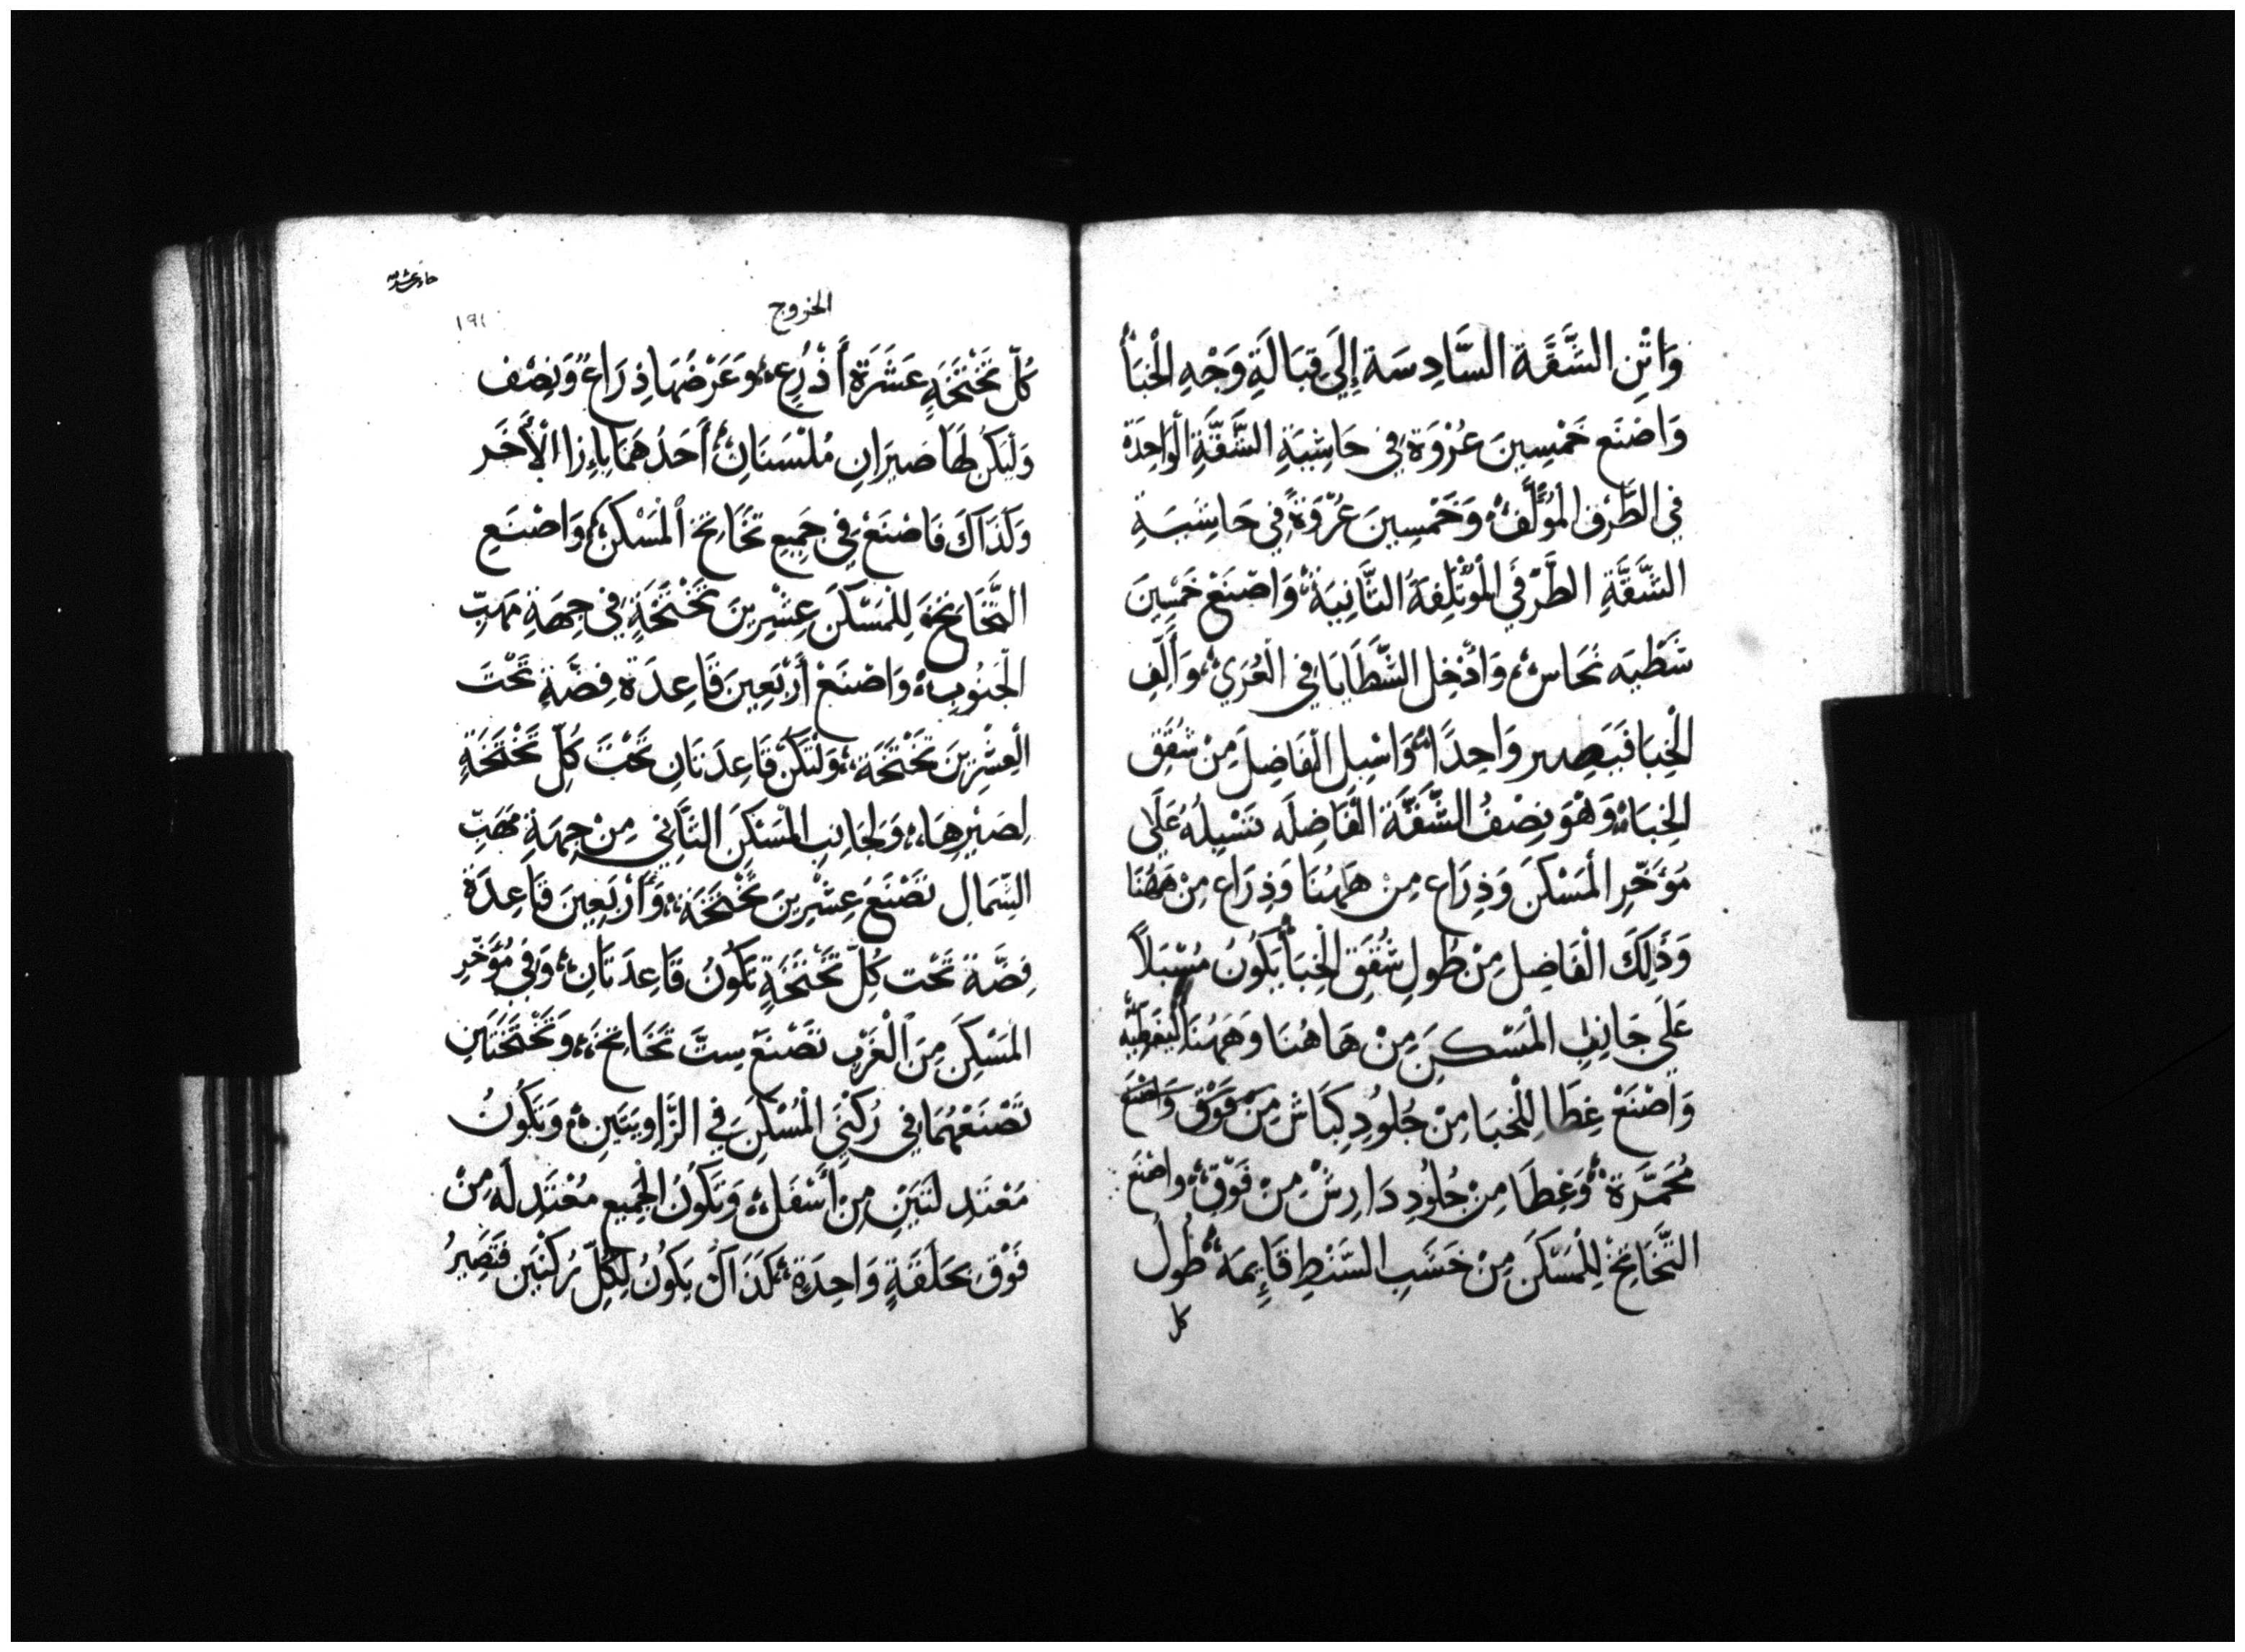 وَاثْنِ الشَّقَّة السَّادِسَة إِلَي قِبَالَةِ وَجْهِ الْخبَأْ
وَاصْنَع خَمْسِينَ عُرْوَة فِي حَاشِيَةِ الشَّقَّةِ الوَاحِدَة
فِي الطَّرَف المُؤَلَّفْ وَخَمْسِينَ عُرْوَةً فِي حَاشِيَةِ
الشَّقَّةِ الطَّرَفَي الْمُؤْتَلِفَةُ الثَّانِيَة وَاصْنَعْ خَمْسِينَ
شَظْيَه نحَاس وَادْخِل الشَّظَايَا فِي الْعُرَي وَأَلِّفِ
الْخِبَا فَيَصِير وَاحِدًا وَاسْبِل الْفَاضِلَ مِنْ شُقَقِ
الخِبَا وَهْوَ نِصْفُ الشَّقَّة الْفَاضِلَه تَسْبِلُهُ عَلَى
مُؤَخّرِ المَسْكَن وَذِرَاع مِنْ هَهُنَا وَذِرَاع مِنْ هَهُنَا
وَذَلِكَ الْفَاضِل مِنْ طُولِ شُقَقِ الْخِبَأْ يَكُونُ مُسْبَلاً
عَلَي جَانِبَي المَسْكِنَ مِنْ هَاهُنَا وَهَهُنَا لِيغَطِيَّه
وَاصْنَعْ غِطَا لِلْخبَا مِنْ جُلُودِ كِبَاش مِنْ فَوْق وَاصْنَع
مُحَمَّرَة وَغِطَا مِنْ جُلُودِ دَارِشْ مِنْ فَوْق وَاصْنَع
التَّخَاتِخْ لِلْمَسْكَنَ مِنْ خَشَبِ السَّنْطِ قَايِمَة طُولُ
كل
الخروج
١٩١
كُلّ تَخْتَخَةٍ عَشَرَةْ أَذْرُعِ وَعَرْضُهَا ذِرَاعْ وَنِصْف
وَلْيَكُن لَهَا صيَرَانِ مُلْسَنَانْ أَحَدُهمَا بِإِزَا الْأَخَر
وَكَذَاكَ فَاصْنَعْ فِي جَمِيعِ تخَاتِخ المَسْكَنْ وَاصْنَعِ
التَّخَاتِخَ لِلْمَسْكَن عِشْرِينَ تَخْتَخَةٍ فِي جِهَةِ مَهَبِّ
الْجَنُوبِ وَاصْنَعْ أَرْبَعِينَ قَاعِدَة فِضَّةٍ تَحْتَ
الْعِشْرِينَ تَخْتَخَة وَلْتَكُنْ قَاعِدَتَانِ تَحْتَ كُلّ تَخْتَخَةٍ
لِصَيْرِهَا وَلِجَانِب المَسْكَنَ الثَّانِي مِنْ جِهَةِ مَهَبِّ
الشِّمَالِ تَصْنَعَ عِشْرِينَ تَخْتَخَة وَأَرْبَعِينَ قَاعِدَةْ
فِضّة تَحْت كُلّ تَخْتَخَةٍ تَكُونُ قَاعِدَتَانِ وَفِي مُؤَخّرِ
المَسْكِنَ مِنَ الْغَرْب تَصْنَعَ سِتّ تَخَاتِخ وَتَخْتَخَتَينِ
تَصْنَعْهُمَا فِي رُكْنَيْ المُسْكِنَ فِي الزَّاوِيَتَينِ وَيَكُونُ
مَعْتَدِ لَتَيْنِ مِنْ أَسْفَل وَيَكُونُ الْجَمِيع مُعْتَدِ لَه مِنْ
فَوْق بَحلَقَةٍ وَاحِدَةٍ كَذَاكَ يَكُونُ لِكُلِّ رُكْنَيْن فَتَصِيرُ